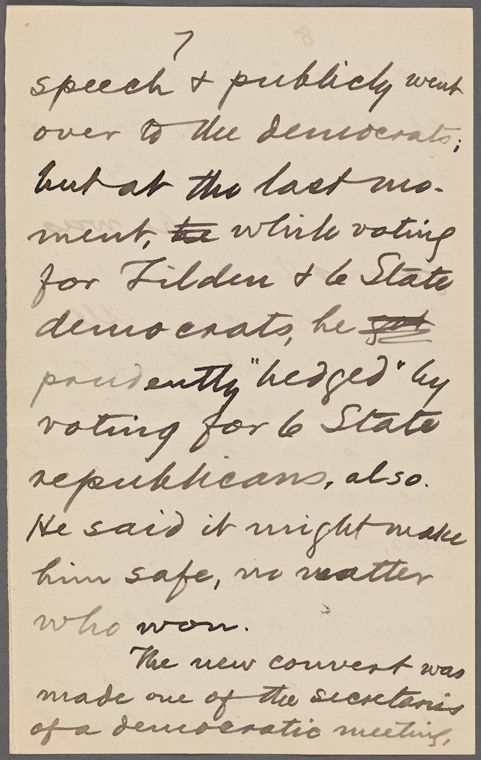 7
speech & publicly went
over to the democrats;
but at the last mo-
ment, he while voting
for Tilden & 6 State
democrats, he
prudently "hedged" by
voting for 6 State
republicans, also.
He said it might make
him safe, no matter
who won.
The new convert was
made one of the secretaries
of a democratic meeting,